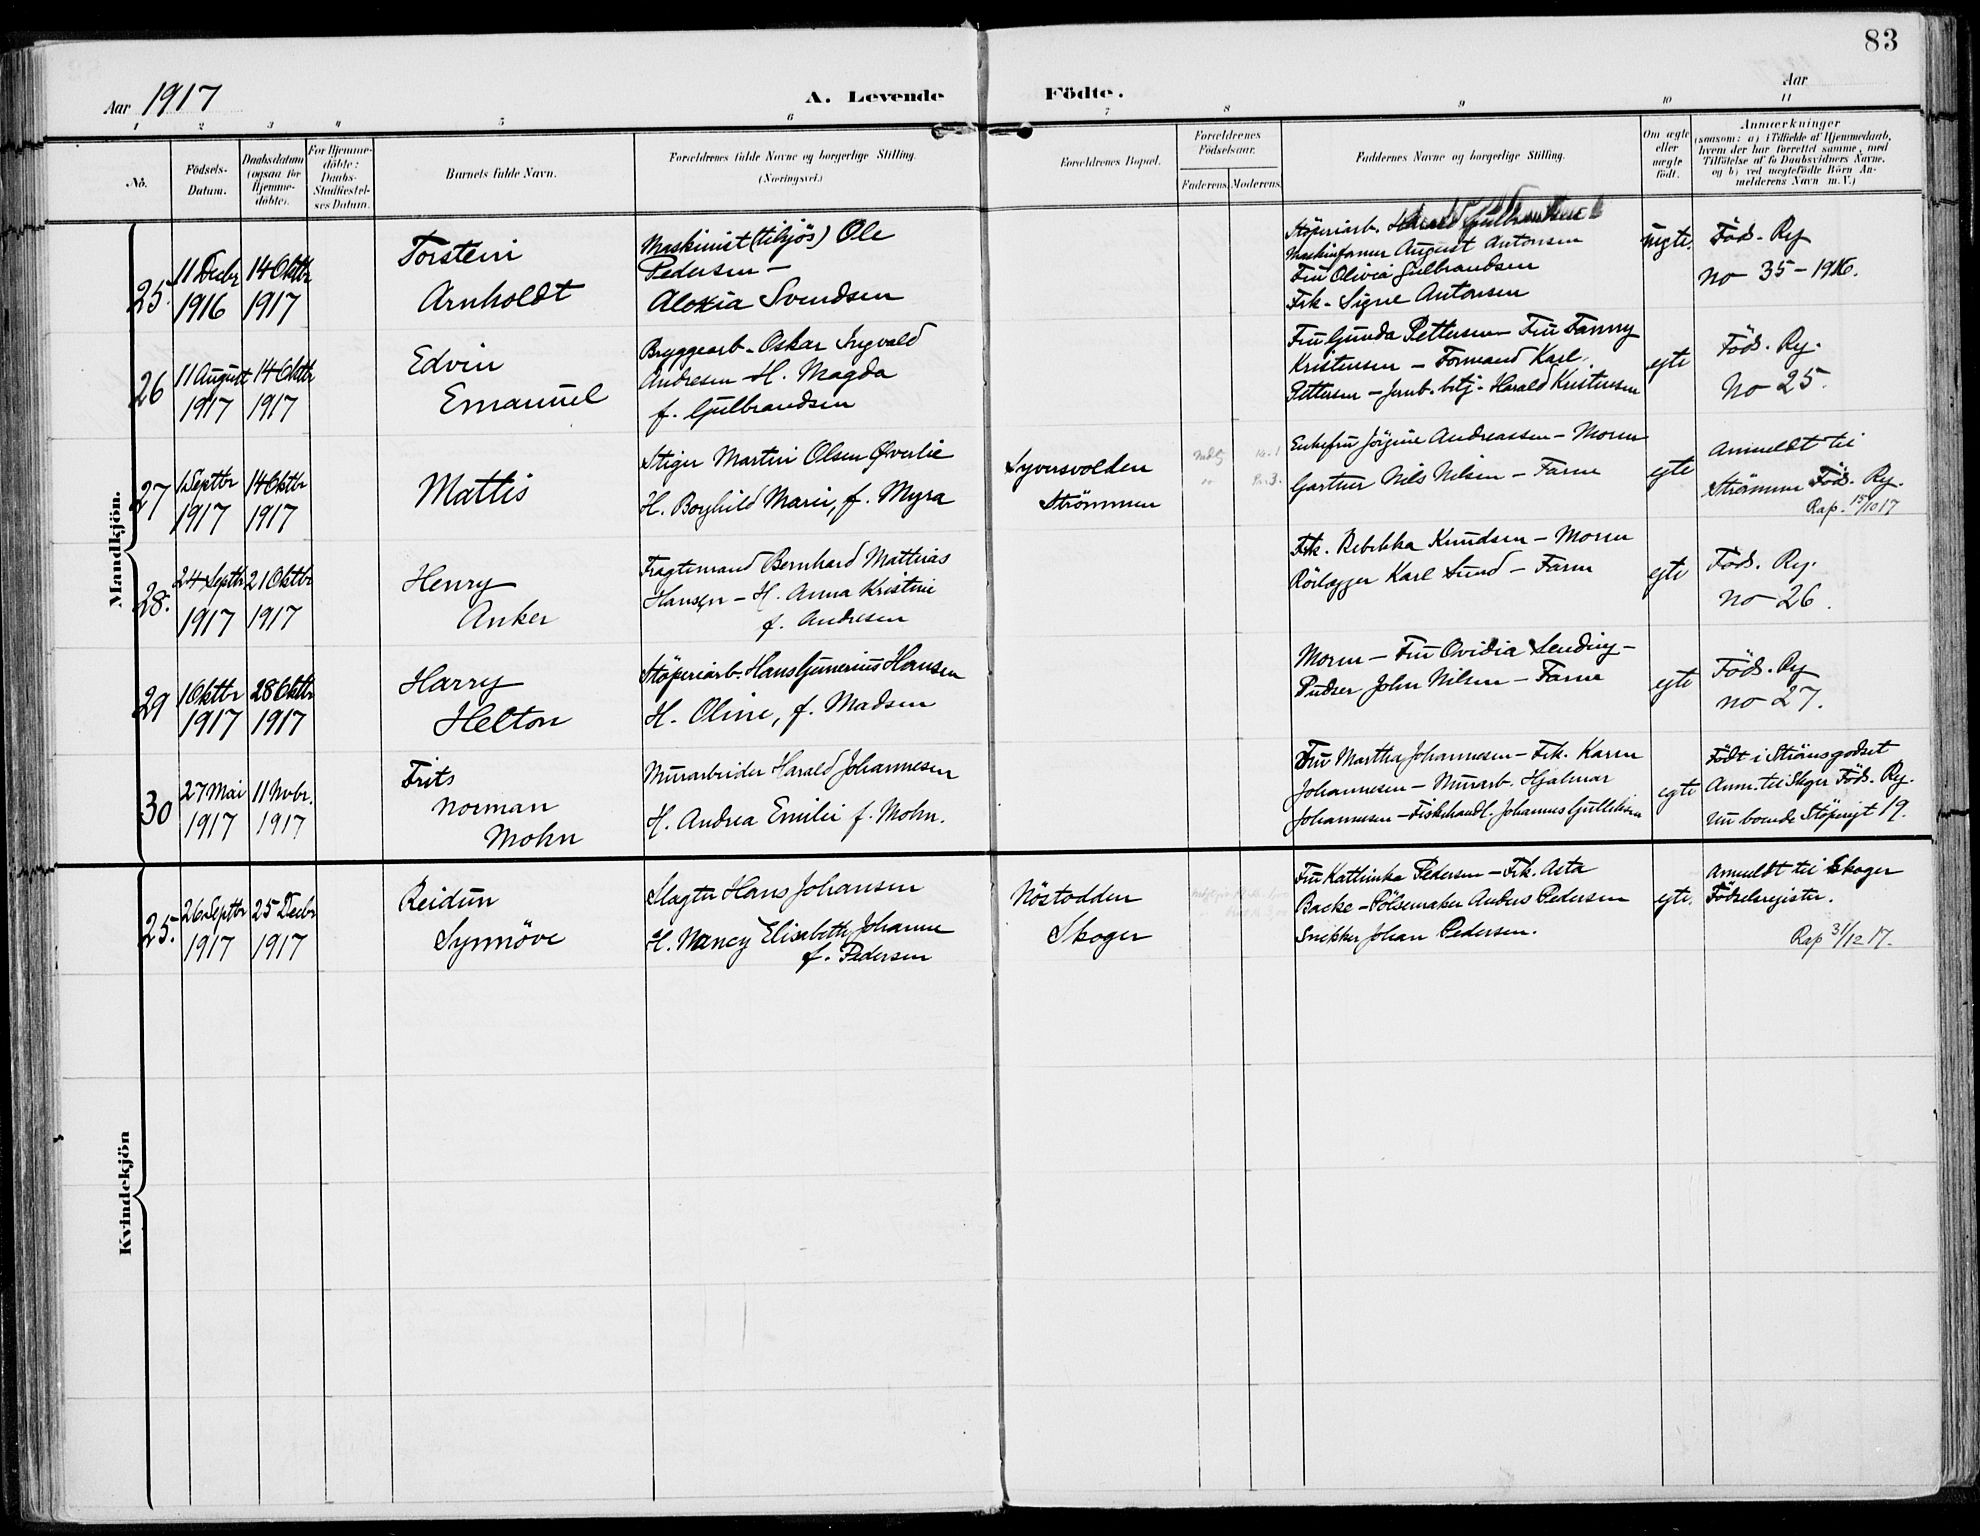 83
Aar 1917
A. Levende Födte.
Aar
1 2 3 4 5 6 7 8 9 10 11
No.
Födsels-
Datum.
Daabsdatum
(ogsaa for
Hjemme-
döbte).
For Hjemme-
döbte:
Daabs-
Stadfæstel-
ses Datum.
Barnets fulde Navn.
Forældrenes fulde Navne og borgerlige Stilling.
(Næringsvei.)
Forældrenes Bopæl.
Forældrenes
Födselsaar.
Faderens. Moderens.
Faddernes Navne og borgerlige Stilling.
Om ægte
eller
uægte
födt.
Anmærkninger
(saasom: a) i Tilfælde af Hjemmedaab,
hvem der har forrettet samme, med
Tilföielse af to Daabsvidners Navne.
og b) ved uægtefödte Börn An-
melderens Navn m. V.)
Mandkjön.
25.
11 Decbr
1916
14 Oktbr
1917
Torstein
Arnholdt
Maskinist (tilsjös) Ole
Pedersen –
Aloxia Svendsen
Støperiarb. Harald Gulbrandsen
Maskinformer August Antonsen
Fru Olivia Gulbrandsen
Frk. Signe Antonsen
uegte.
Föds. Rg
no 35 – 1916.
26
11 August
1917
14 Oktbr
1917
Edvin
Emanuel
Bryggearb. Oskar Ingvald
Andresen – H. Magda
f. Gulbrandsen
Fru Gunda Pettersen – Fru Fanny
Kristensen – Formand Karl
Pettersen – Jernb. betj. Harald Kristensen
egte
Föds. Rg.
No 25.
27
1 Septbr
1917
14 Oktbr
1917
Mattis
Stiger Martin Olsen Øverlie
H. Borghild Marie, f. Myra
Syversvolden
Strömmen
Enkefru Jörgine Andreassen – Moren
Gartner Nils Nilsen – Faren
egte
Anmeldt til
Strömmen Föds. Rg.
Rap. 15/10 17
28.
24 Septbr
1917
21 Oktbr
1917
Henry
Anker
Fragtemand Bernhard Mathias
Hansen – H. Anna Kristine
f. Andresen
Frk. Rebekka Knudsen – Moren
Rörlægger Karl Lund – Faren
egte
Föds. Rg.
no 26.
29
1 Oktbr
1917
28 Oktbr
1917
Harry
Helton
Støperiarb. Hans Gunerius Hansen
H. Oline, f. Madsen
Moren – Fru Ovidia Sending –
Pudser John Nilsen – Faren
egte
Föds. Rg
no 27.
30
27 Mai
1917
11 Nvbr.
1917
Frits
Norman
Mohn
Murarbeider Harald Johannesen
H. Andrea Emilie f. Mohn.
Fru Martha Johannesen – Frk. Karen
Johannesen – Murarb. Hjalmar
Johannesen – Fiskehandl. Johannes Gulliksen
egte
Födt i Strömsgodset
Anm. til Skoger Föds. Rg.
nu boende Støperigt 19.
Kvindekjön
25.
26 Septbr
1917
25 Decbr
1917
Reidun
Synnöve
Slagter Hans Johansen
H. Nancy Elisabeth Johanne
f. Pedersen
Nöstodden
Skoger
Fru Kathinka Pedersen – Frk. Asta
Backe – Pölsemaker Anders Pedersen
Snekker Johan Pedersen.
egte.
Anmeldt til Skoger
Födselsregister.
Rap 31/12 17.